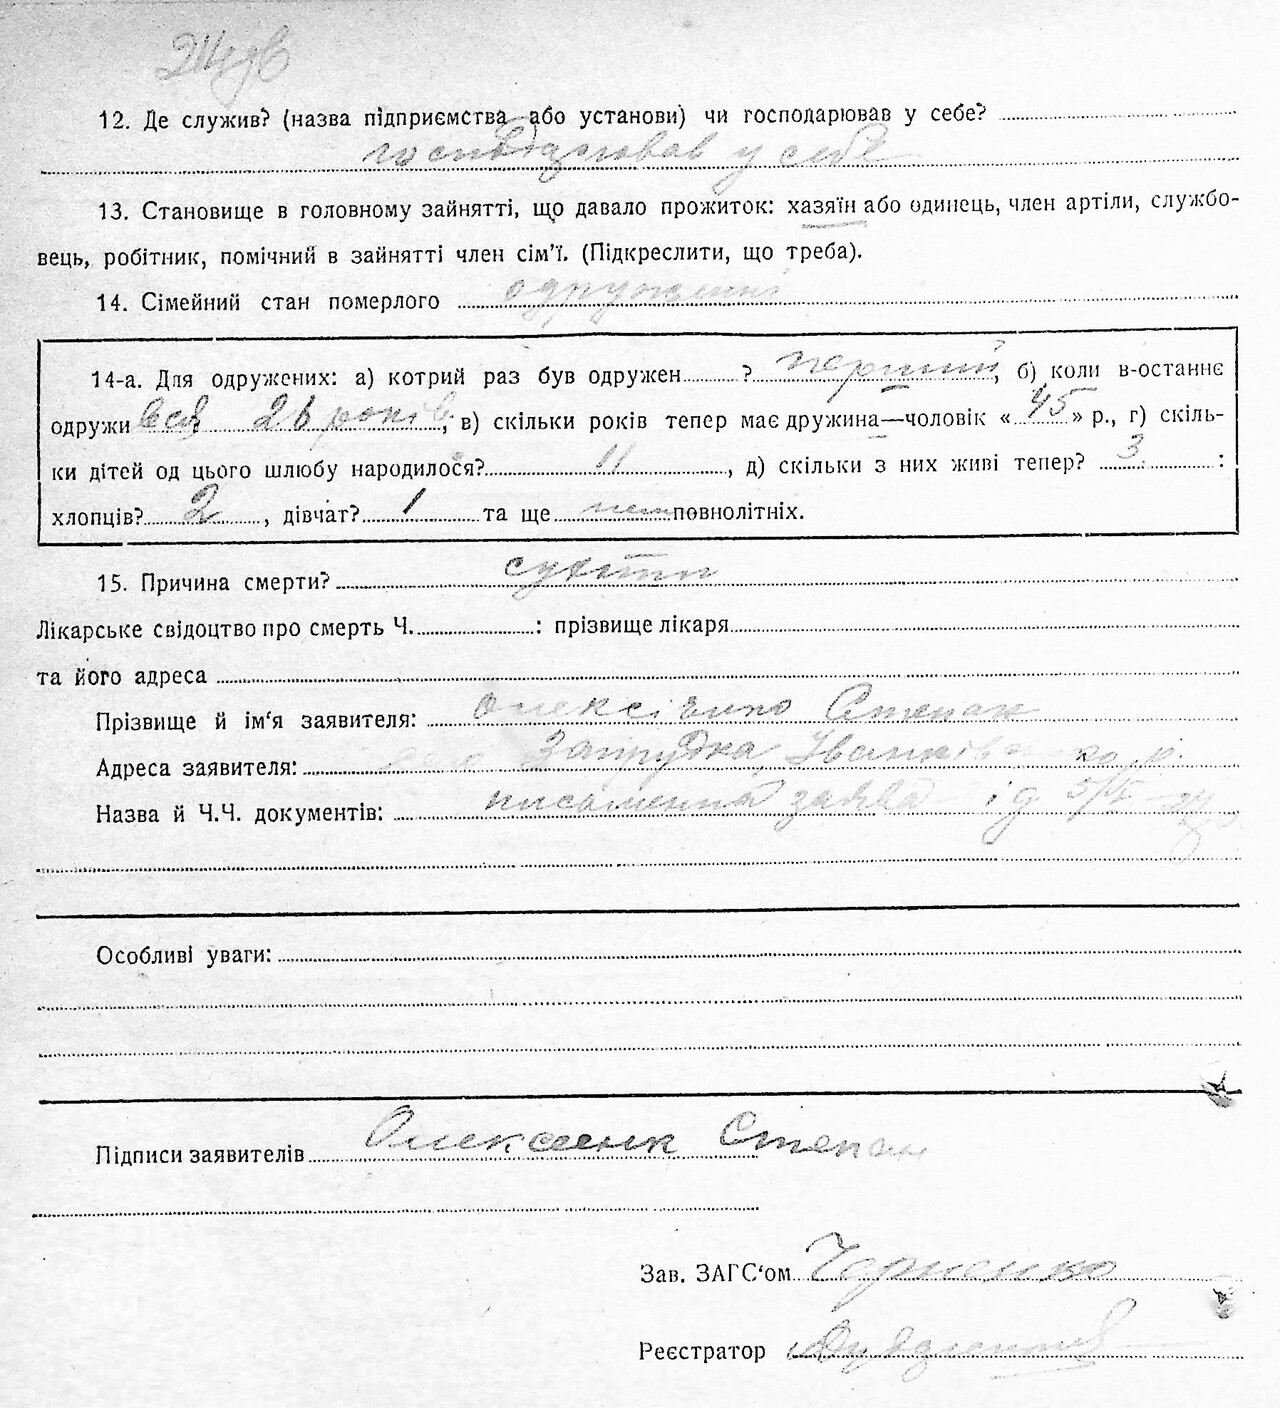 12. Де служив? (назва підприємства або установи) чи господарював у себе?
господарював у себе
13. Становище в головному зайнятті, що давало прожиток: хазяїн або одинець, член артіли, службо-
вець, робітник, помічний в зайнятті член сім'ї. (Підкреслити, що треба).
14. Сімейний стан померлого одружений
14-а. Для одружених: а) котрий раз був одружен ? перший, б) коли в-останнє
одружився 26 років, в) скільки років тепер має дружина—чоловік « 45 » р., г) скіль-
ки дітей од цього шлюбу народилося? 11, д) скільки з них живі тепер? 3 :
хлопців? 2, дівчат? 1 та ще повнолітніх.
15. Причина смерти?
Лікарське свідоцтво про смерть Ч. : прізвище лікаря
та його адреса
Прізвище й ім'я заявителя: Олексієнко Степан
Адреса заявителя: Запрудка, Іванківського р.
Назва й Ч.Ч. документів: письменна заява
Особливі уваги:
Підписи заявителів Степан
Зав. ЗАГС'ом Черненко
Реєстратор